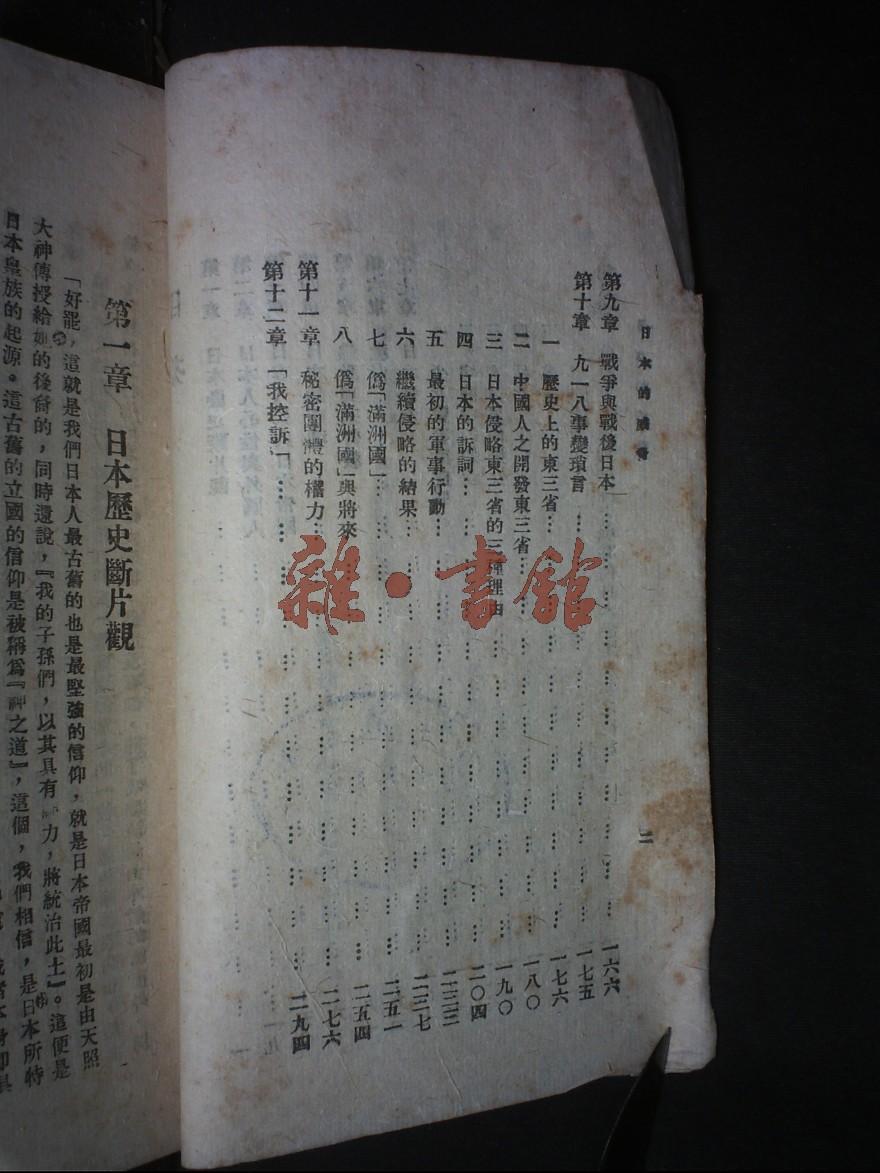 日本的
二
第九章　戰爭與戰後日本……一六六
第十章　九一八事變瑣言……一七五
一　歷史上的東三省……一七六
二　中國人之開發東三省……一八〇
三　日本侵略東三省的三種理由……一九〇
四　日本的訴詞……二〇四
五　最初的軍事行動……二三三
六　繼續侵略的結果……二三七
七　僞「滿洲國」……二五一
八　僞「滿洲國」與將來……二五四
第十一章　秘密團體的權力……二七六
第十二章　「我控訴」……二九四
雜·書館
第一章　日本歷史斷片觀
「好罷，這就是我們日本人最古舊的也是最堅強的信仰，就是日本帝國最初是由天照
大神傳授給她的後裔的，同時還說，『我的子孫們，以其具有力，將統治此土』。這便是
日本皇族的起源。這古舊的立國的信仰是被稱爲『神之道』，這個，我們相信，是日本所特